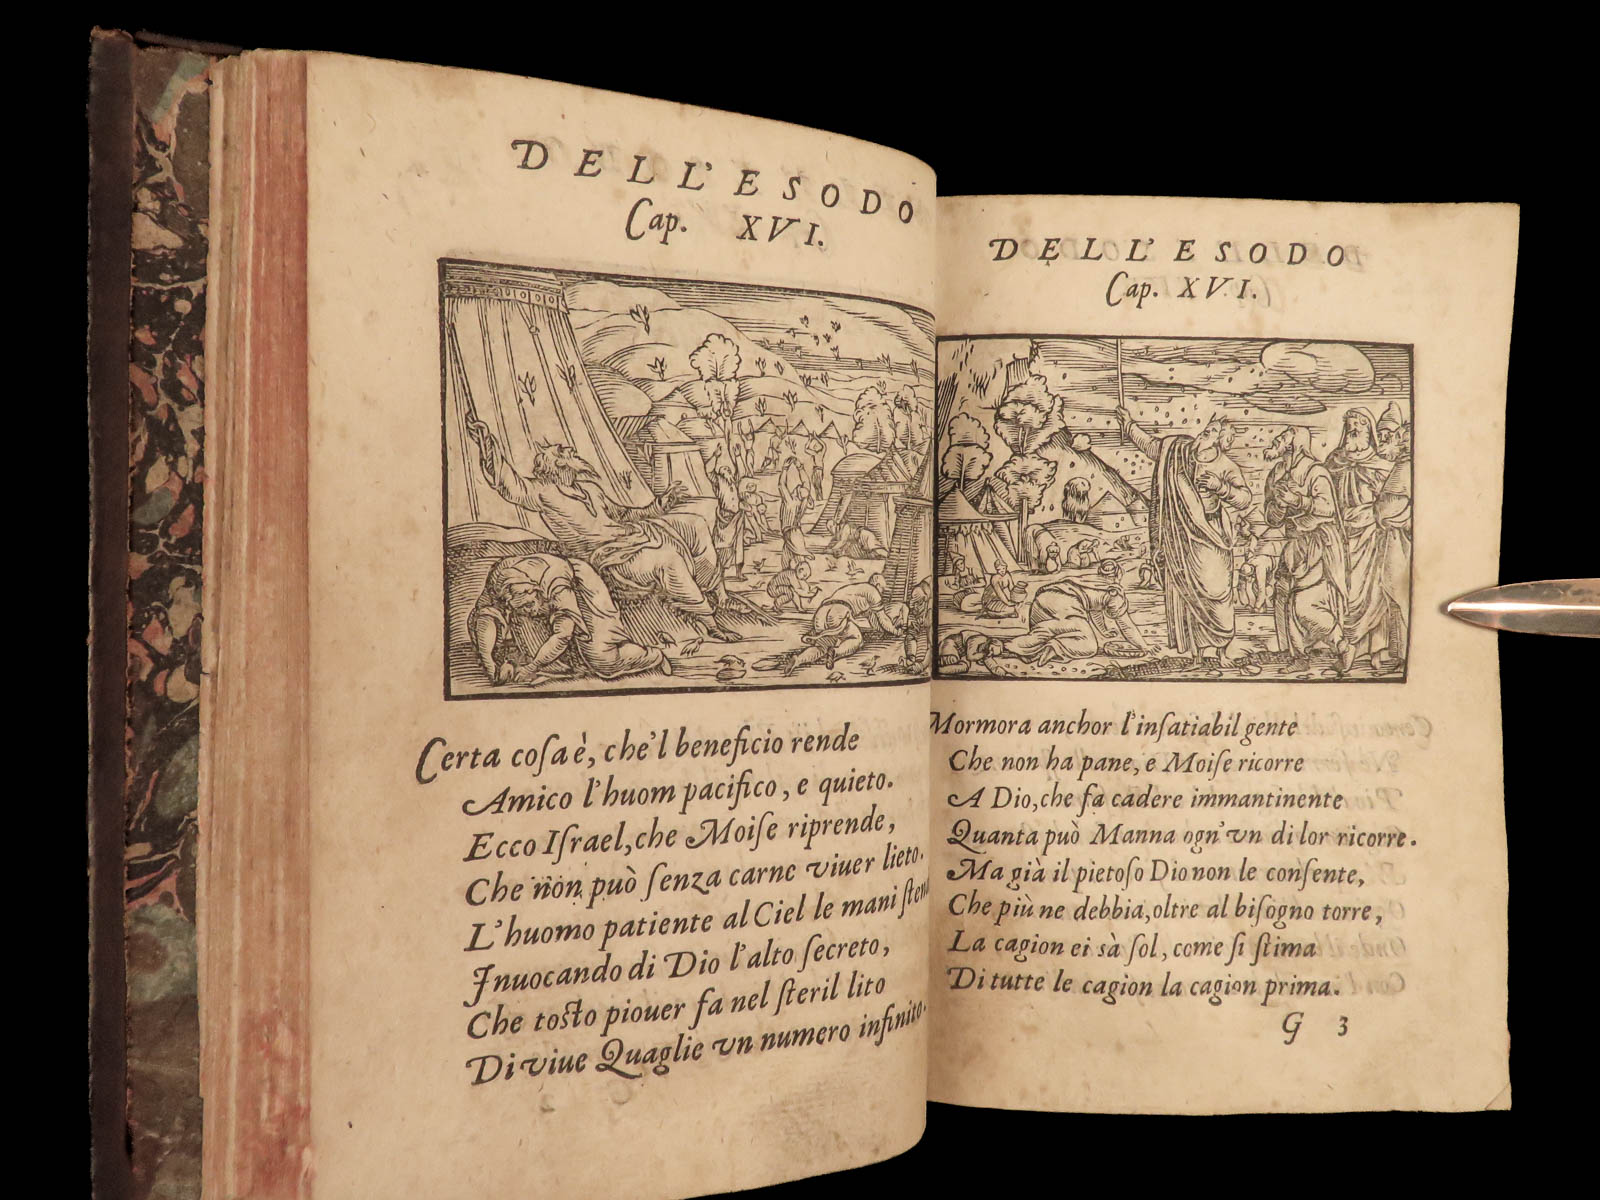 DELL'ESODO
Cap. XVI.
Certa coſa è, che'l beneficio rende
Amico l'huom pacifico, e quieto.
Ecco Iſrael, che Moiſe riprende,
Che non può ſenza carne viuer lieto.
L'huomo patiente al Ciel le mani
Inuocando di Dio l'alto ſecreto,
Che toſto piouer fa nel ſteril lito
Di viue Quaglie vn numero infinito.
DELL'ESODO
Cap. XVI.
Mormora anchor l'inſatiabil gente
Che non ha pane, e Moiſe ricorre
A Dio, che fa cadere immantinente
Quanta può Manna ogn'vn di lor ricorre.
Ma già il pietoſo Dio non le conſente,
Che più ne debbia, oltre al biſogno torre,
La cagion ei sà ſol, come ſi ſtima
Di tutte le cagion la cagion prima.
G 3